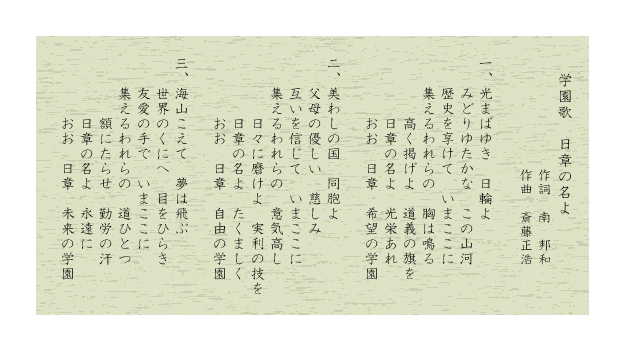 学園歌　日章の名よ
作詞　南　邦和
作曲　斎藤正浩
一、光まばゆき　日輪よ
みどりゆたかな　この山河
歴史を享けて　いまここに
集えるわれらの　胸は鳴る
高く掲げよ　道義の旗を
日章の名よ　光栄あれ
おお　日章　希望の学園
二、美わしの国　同胞よ
父母の優しい　慈しみ
互いを信じて　いまここに
集えるわれらの　意気高し
日々に磨けよ　実利の技を
日章の名よ　たくましく
おお　日章　自由の学園
三、海山こえて　夢は飛ぶ
世界のくにへ　目をひらき
友愛の手で　いまここに
集えるわれらの　道ひとつ
額にたらせ　勤労の汗
日章の名よ　永遠に
おお　日章　未来の学園